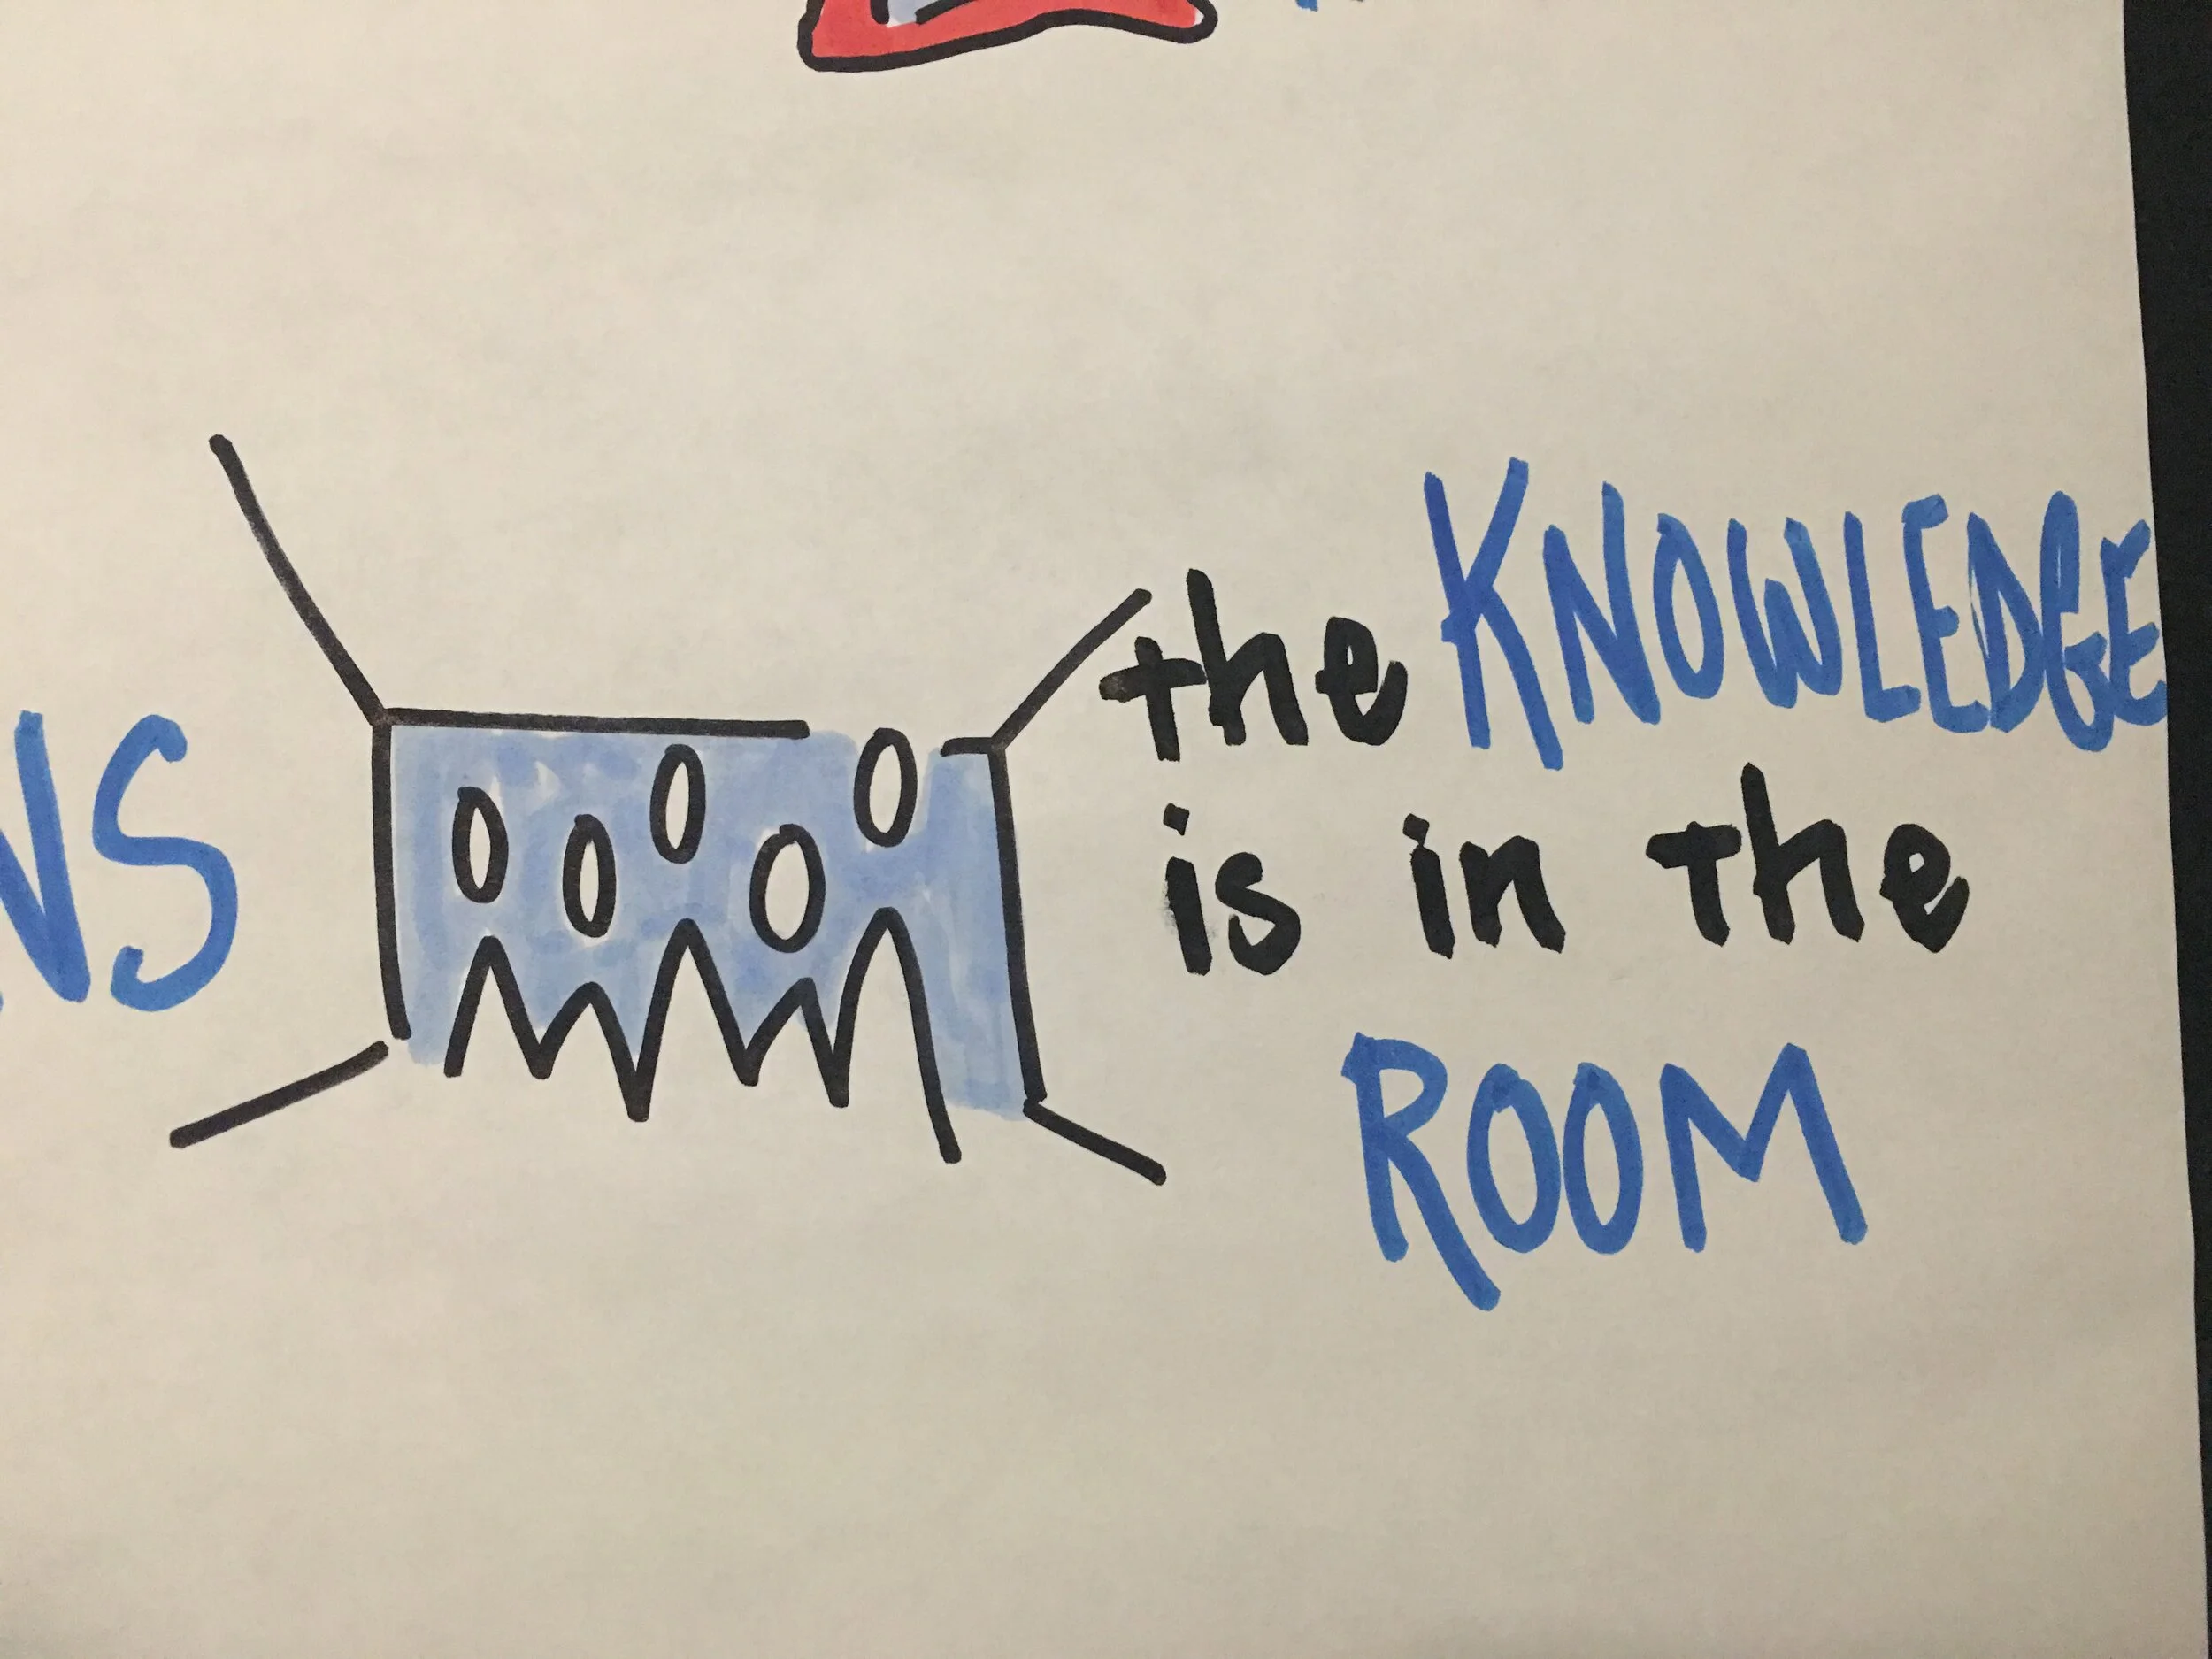 the KNOWLEDGE
is in the
ROOM